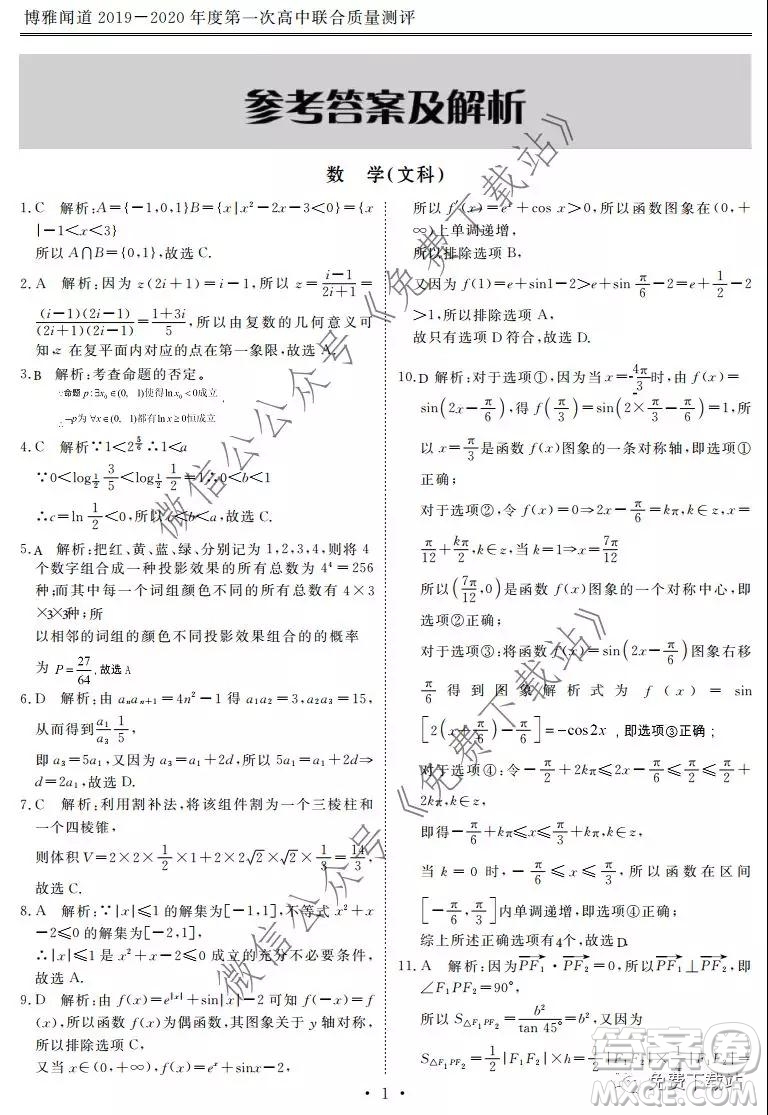 博雅闻道 2019-2020 年度第一次高中联合质量测评
参考答案及解析
数 学(文科)
1.C 解析:A={-1,0,1}B={x|x²-2x-3<0}={x
|-1<x<3}
所以 A∩B={0,1},故选 C.
2.A 解析:因为 z(2i+1)=i-1,所以 z=\frac{i-1}{2i+1}=
\frac{(i-1)(2i-1)}{(2i+1)(2i-1)}=\frac{1+3i}{5},所以由复数的几何意义可
知 z 在复平面内对应的点在第一象限,故选 A.
3.B 解析:考查命题的否定。
∵命题 p:∃x₀∈(0, 1)使得ln x₀<0成立
∴¬p为 ∀x∈(0, 1)都有ln x≥0恒成立
4.C 解析∵1<2^{\frac{5}{6}}∴1<a
∵0<log_{\frac{1}{2}}\frac{3}{5}<log_{\frac{1}{2}}\frac{1}{2}=1∴0<b<1
∴c=ln\frac{1}{2}<0,所以c<b<a,故选 C.
5.A 解析:把红、黄、蓝、绿、分别记为 1,2,3,4,则将 4
个数字组合成一种投影效果的所有总数为 4⁴=256
种;而其中每一个词组颜色不同的所有总数有 4×3
×3×3种;所
以相邻的词组的颜色不同投影效果组合的的概率
为 P=\frac{27}{64},故选 A
6.D 解析:由 aₙaₙ₊₁=4n²-1 得 a₁a₂=3,a₂a₃=15,
从而得到\frac{a₁}{a₃}\frac{1}{5},
即 a₃=5a₁,又因为 a₃=a₁+2d,所以 5a₁=a₁+2d⇒
d=2a₁,故选 D.
7.C 解析:利用割补法,将该组件割为一个三棱柱和
一个四棱锥,
则体积 V=2×2×\frac{1}{2}×1+2×2√2×√2×\frac{1}{3}=\frac{14}{3},
故选 C.
8.A 解析:∵|x|≤1 的解集为[-1,1],不等式 x²+x
-2≤0 的解集为[-2,1],
∴|x|≤1 是 x²+x-2≤0 成立的充分不必要条件,
故选 A.
9.D 解析:由 f(x)=e^{|x|}+sin|x|-2 可知 f(-x)=f
(x)为偶函数,其图象关于 y 轴对称,
所以排除选项 C,
又当 x∈(0,+∞),f(x)=eˣ+sin x-2,
所以 f′(x)=eˣ+cos x>0,所以函数图象在(0,+
∞)上单调递增,
所以排除选项 B,
又因为 f(1)=e+sin1-2>e+sin\frac{π}{6}-2=e+\frac{1}{2}-2
>1,所以排除选项 A,
故只有选项 D 符合,故选 D.
10.D 解析:对于选项①,因为当 x=\frac{4π}{3}时,由 f(x)=
sin(2x-\frac{π}{6}),得 f(x)=sin(2×\frac{π}{3}-\frac{π}{6})=1,所
以 x=\frac{π}{3}是函数 f(x)图象的一条对称轴,即选项①
正确;
对于选项②,令 f(x)=0⇒2x-\frac{π}{6}=kπ,k∈z,x=
\frac{π}{12}+\frac{kπ}{2},k∈z,当 k=1⇒x=\frac{7π}{12}
所以(\frac{7π}{12},0)是函数 f(x)图象的一个对称中心,即
选项②正确;
对于选项③:将函数 f(x)=sin(2x-\frac{π}{6})图象右移
\frac{π}{6}得到图象解析式为 f(x)=sin
[2(x+\frac{π}{6})-\frac{π}{6}]=-cos2x,即选项③正确;
对于选项④:令-\frac{π}{2}+2kπ≤2x-\frac{π}{6}≤\frac{π}{2}≤\frac{π}{2}+
2kπ,k∈z,
即得-\frac{π}{6}+kπ≤x≤\frac{π}{3}+kπ,k∈z,
当 k=0 时,-\frac{π}{6}≤x≤\frac{π}{3},所以函数在区间
[-\frac{π}{6},\frac{π}{3}]内单调递增,即选项④正确;
综上所述正确选项有4个,故选D
11.A 解析:因为PF₁·PF₂=0,所以PF₁⊥PF₂,即
∠F₁PF₂=90°,
所以 S△F₁PF₂=\frac{b²}{tan 45°}=b²,又因为
S△F₁PF₂=\frac{1}{2}|F₁F₂|×h=\frac{1}{2}|F₁F₂|×\frac{1}{4}|F₁F₂|=
· 1 ·
微信公众号《免费下载站》
微信公众号《免费下载站》
答案圈
免费下载站